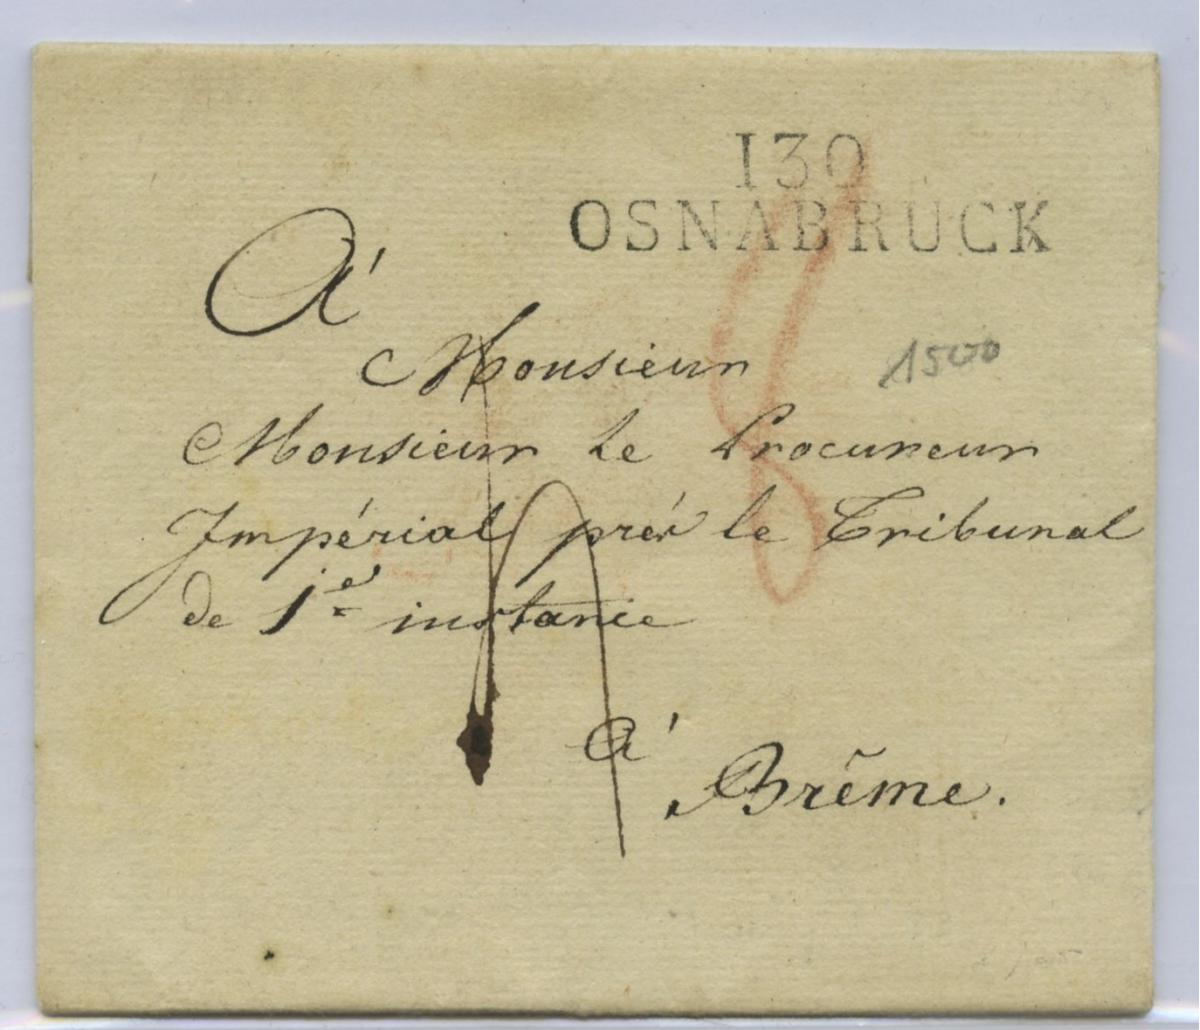 130
OSNABRUCK
À
Monsieur
1500
Monsieur le Procureur
Impérial prés le Tribunal
de 1.e instance
à
Brême.